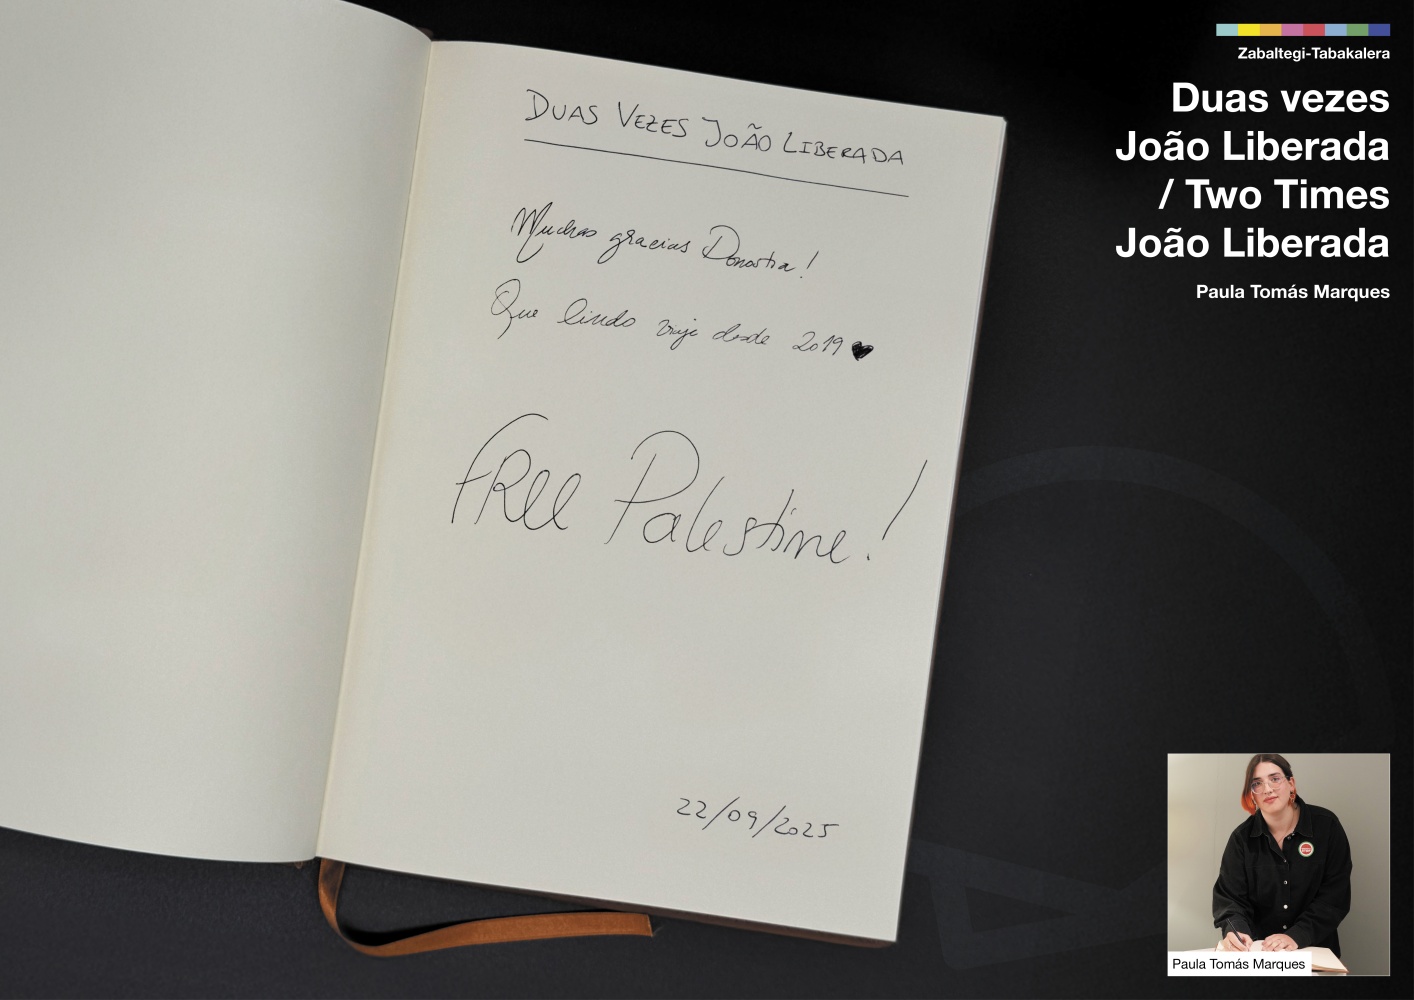 DUAS VEZES JOÃO LIBERADA
Muchas gracias Donostia!
Que lindo viaje desde 2019 ♥
FREE Palestine!
22/09/2025
Zabaltegi-Tabakalera
Duas vezes
João Liberada
/ Two Times
João Liberada
Paula Tomás Marques
Paula Tomás Marques